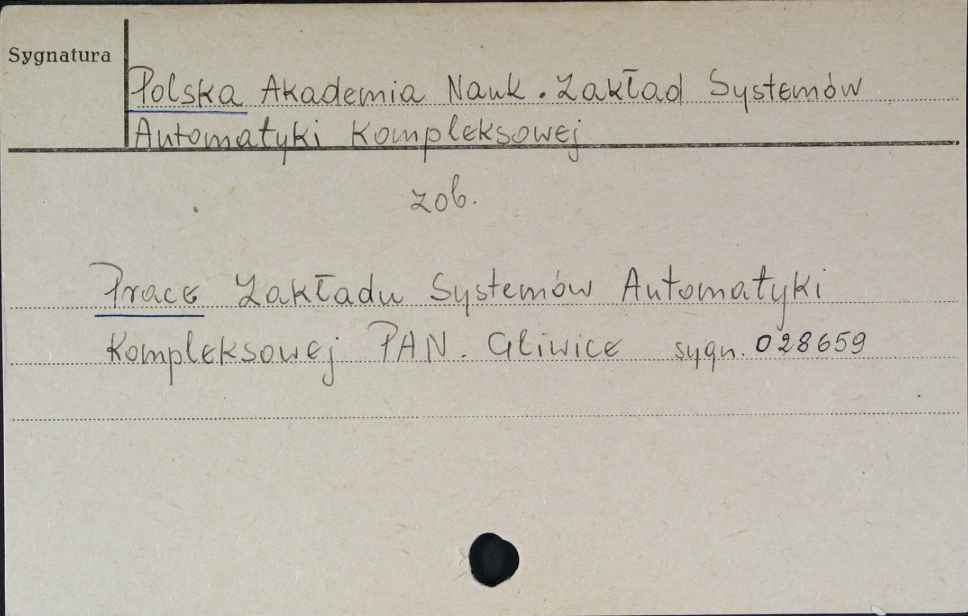 Sygnatura
Polska Akademia Nauk. Zakład Systemów
Automatyki Kompleksowej
zob.
Prace Zakładu Systemów Automatyki
Kompleksowej PAN. Gliwice sygn. 028659